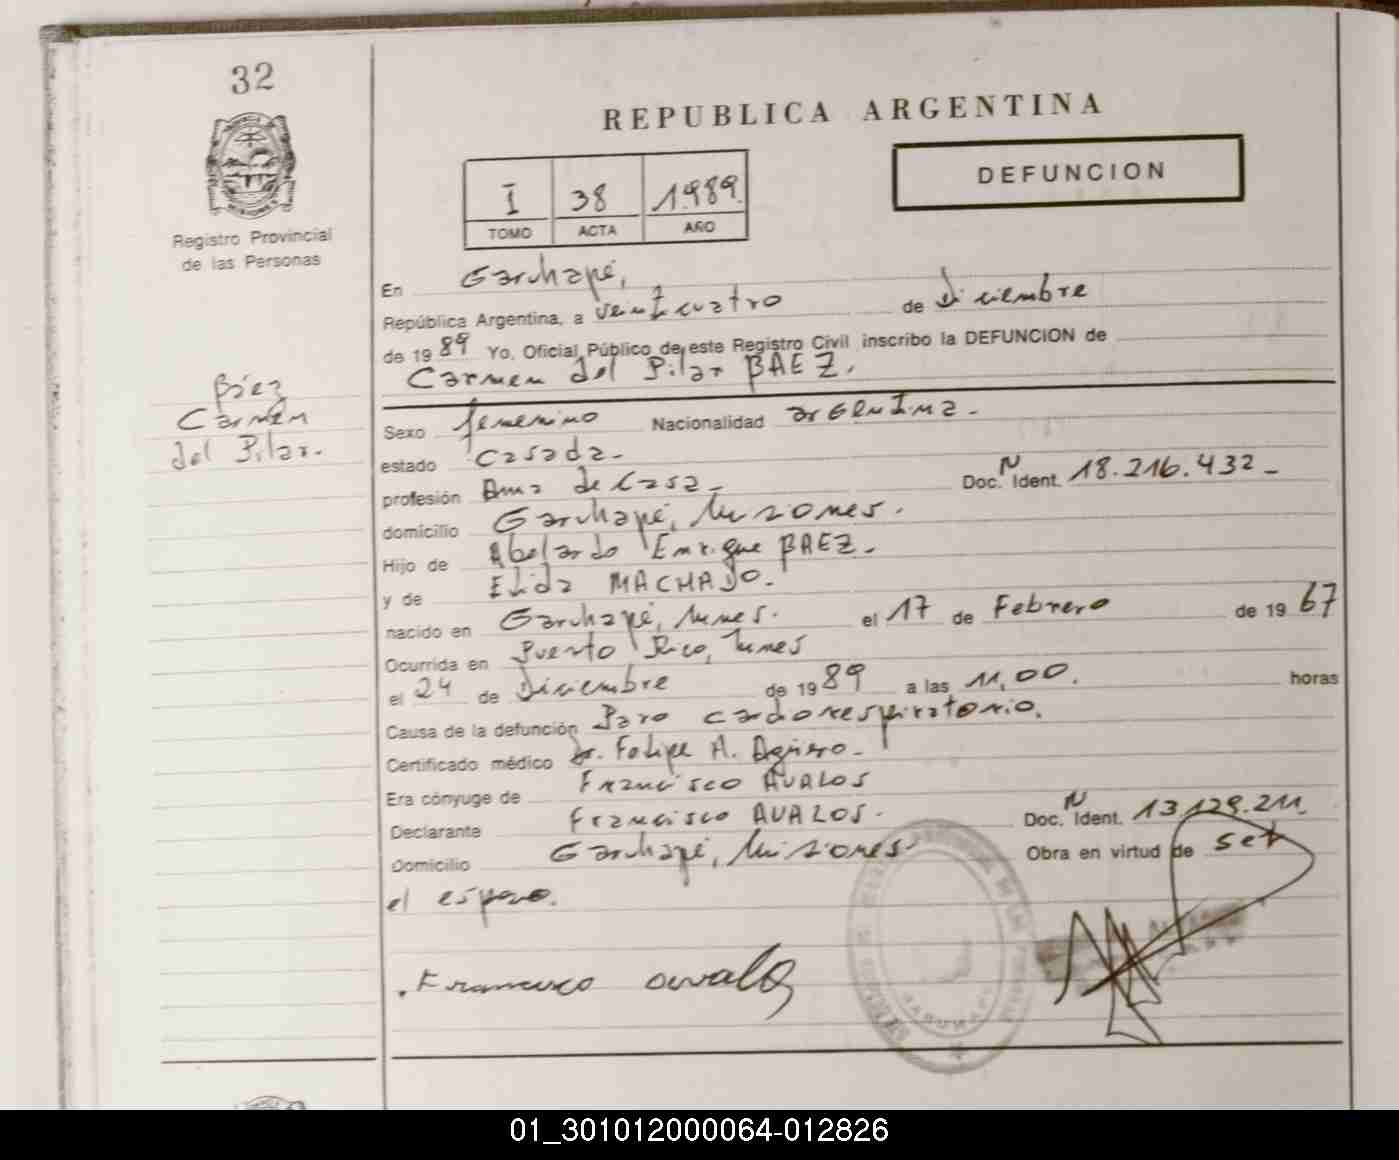 32
Registro Provincial
de las Personas
Báez
Carmen
del Pilar.
REPUBLICA ARGENTINA
I 38 1.989.
TOMO ACTA AÑO
DEFUNCION
En Garuhapé,
República Argentina, a veinticuatro de diciembre
de 1989 Yo, Oficial Público de este Registro Civil inscribo la DEFUNCION de
Carmen del Pilar BAEZ.
Sexo femenino Nacionalidad argentina-
estado Casada-
profesión Ama de Casa- Doc. N Ident. 18.216.432-
domicilio Garuhapé, Misiones.
Hijo de Abelardo Enrique BAEZ-
y de Elida MACHADO.
nacido en Garuhapé, el 17 de Febrero de 1967
Ocurrida en Puerto Rico,
el 24 de Diciembre de 1989 a las 11,00. horas
Causa de la defunción Paro cardiorespiratorio.
Certificado médico Dr. Felipe A. Agüero-
Era cónyuge de Francisco AVALOS
Declarante Francisco AVALOS. Doc. N Ident. 13.129.211
Domicilio Garuhapé, Misiones Obra en virtud de ser
el esposo.
Francisco avalos
01_301012000064-012826